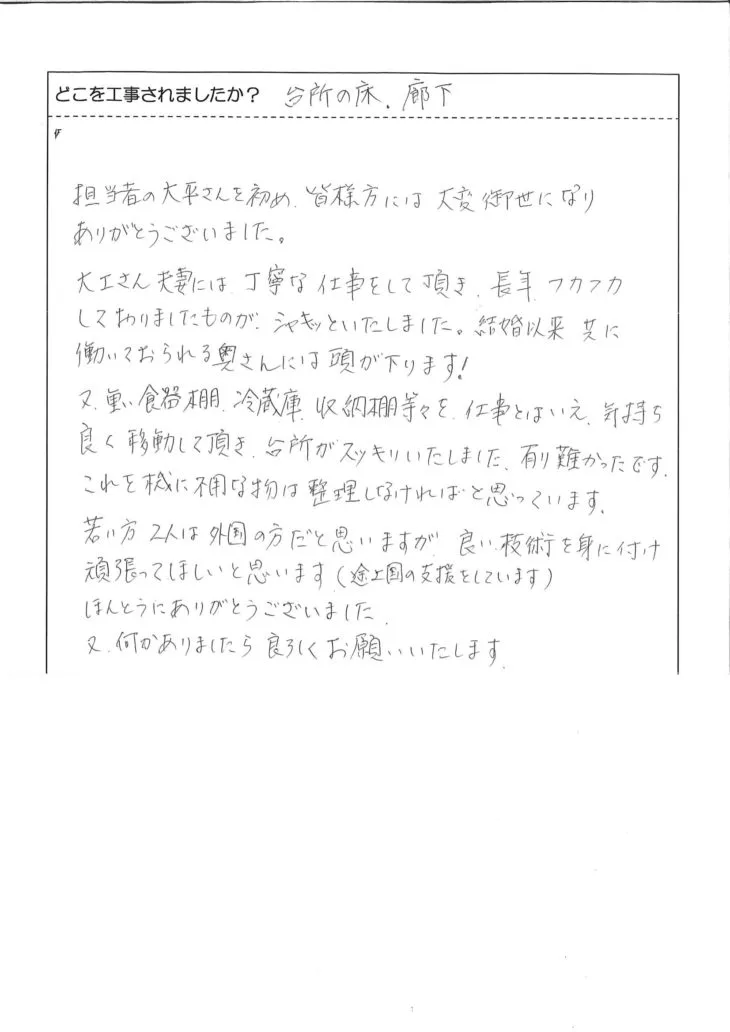 どこを工事されましたか? 台所の床、廊下
担当者の大平さんを初め、皆様方には 大変 御世になり
ありがとうございました。
大工さん 夫妻には、丁寧な 仕事をして 頂き、長年 フカフカ
しておりましたものが、シャキッといたしました。結婚以来 共に
働いておられる奥さんには 頭が下ります!
又、重い食器棚、冷蔵庫、収納棚等々を、仕事とはいえ、気持ち
良く 移動して頂き、台所がスッキリいたしました、有り難かったです、
これを機に 不用な物は 整理しなければと思っています、
若い方 2人は 外国の方だと思いますが、良い技術を身に付け
頑張ってほしいと思います(途上国の支援をしています)
ほんとうにありがとうございました、
又、何かありましたら 良ろしく お願いいたします、